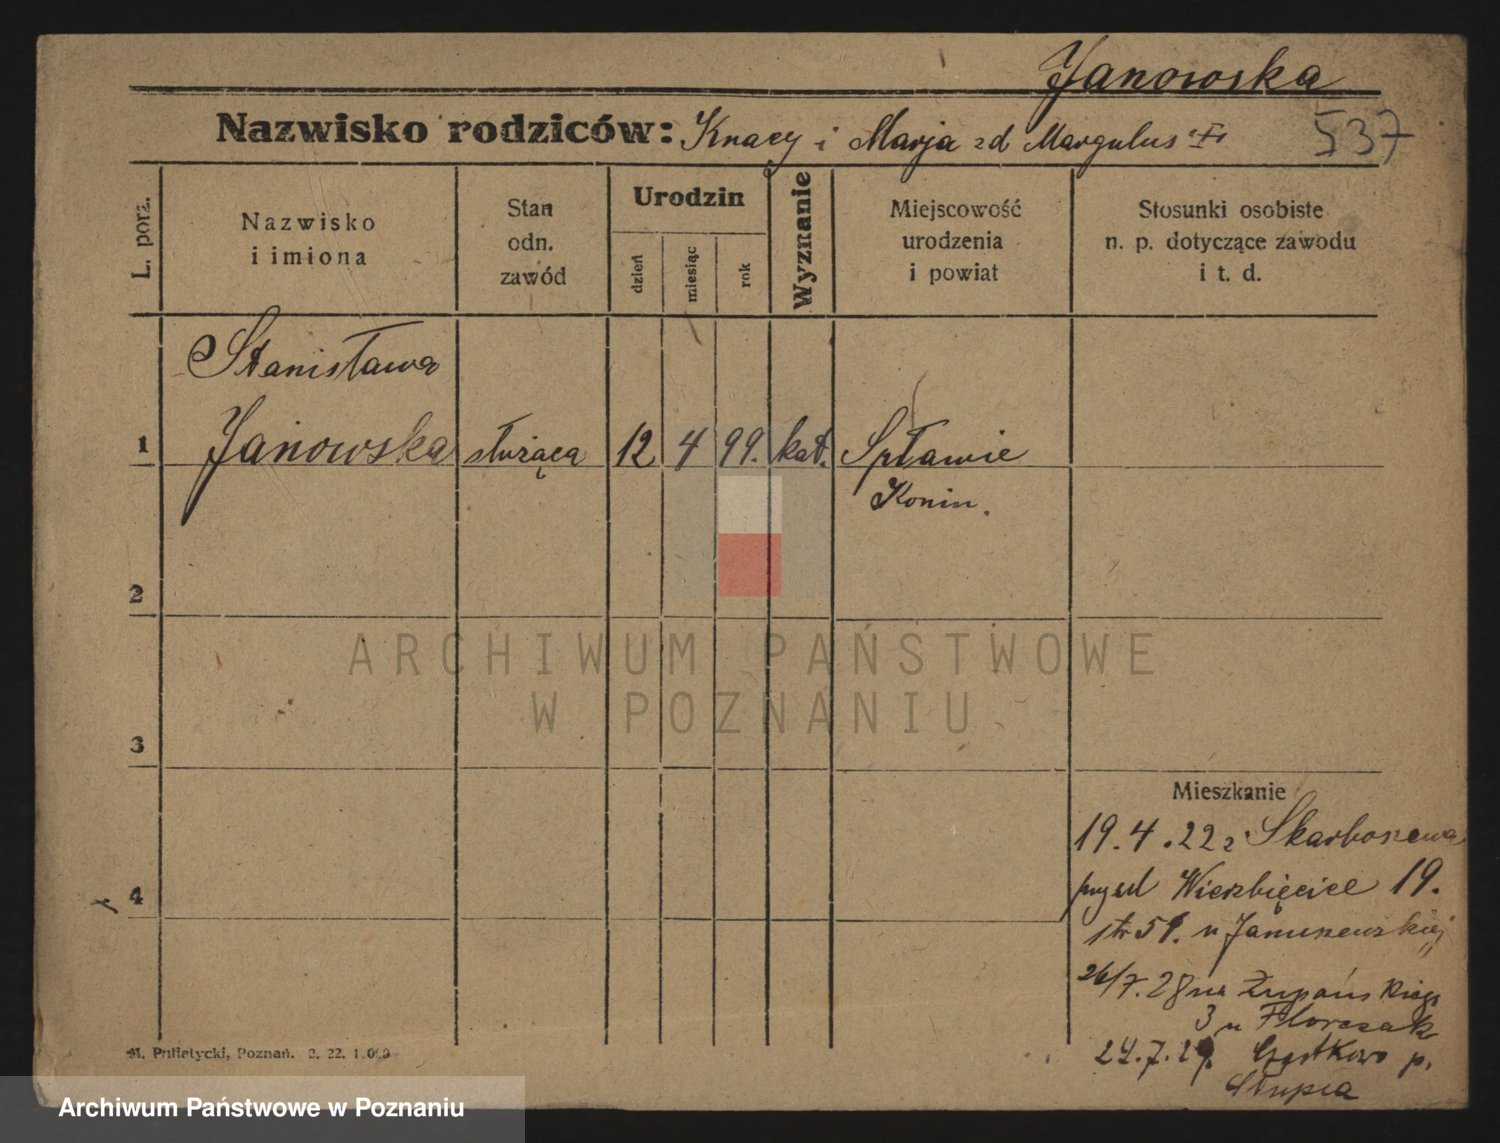 Janowska
Nazwisko rodziców: Knacy i Marja zd Margulus
537
L. porz.
Nazwisko
i imiona
Stan
odn.
zawód
Urodzin
dzień
miesiąc
rok
Wyznanie
Miejscowość
urodzenia
i powiat
Stosunki osobiste
n. p. dotyczące zawodu
i t. d.
Stanisława
1 Janowska służąca 12 4 99. kat. Spławie
Konin.
2
ARCHIWUM PAŃSTWOWE
W POZNANIU
3
Mieszkanie
19.4.22 z Skarboszewa
4
Wierzbięcice 19.
str 51. u Januszewskiej
26/7.28 na Żupańskiego
3 u Florczak
24.7.29. Czostkowo p.
Słupca
M. Putiatycki, Poznań. 2. 22. 1.000
Archiwum Państwowe w Poznaniu